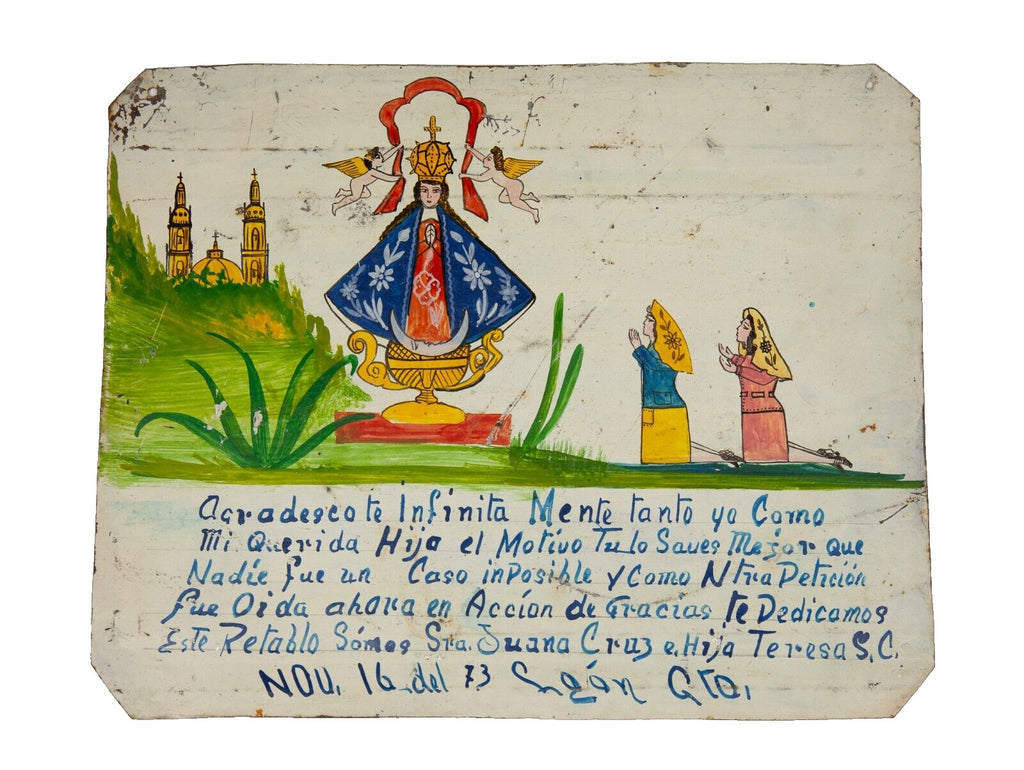 Agradescote Infinita Mente tanto yo Como
Mi Querida Hija el Motivo Tulo Saves Mejor que
Nadie fue un Caso inPosible y Como Ntra Peticion
fue Oida ahora en Acción de Gracias te Dedicamos
Este Retablo Sómos Sra. Juana Cruz e Hija Teresa S.C.
NOV. 16 del 73 León Gto.